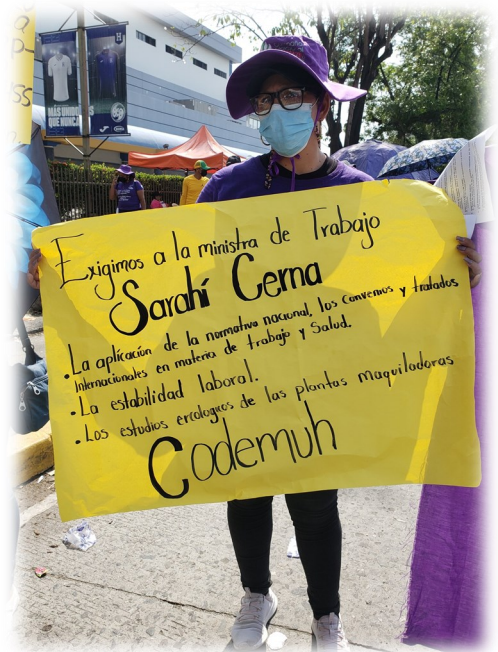 Exigimos a la ministra de Trabajo
Sarahí Cerna
• La aplicación de la normativa nacional, los convenios y tratados
Internacionales en materia de trabajo y Salud.
• La estabilidad laboral.
• Los estudios ercologicos de las plantas maquiladoras
Codemuh
MÁS UNIDOS
QUE NUNCA
H
SS